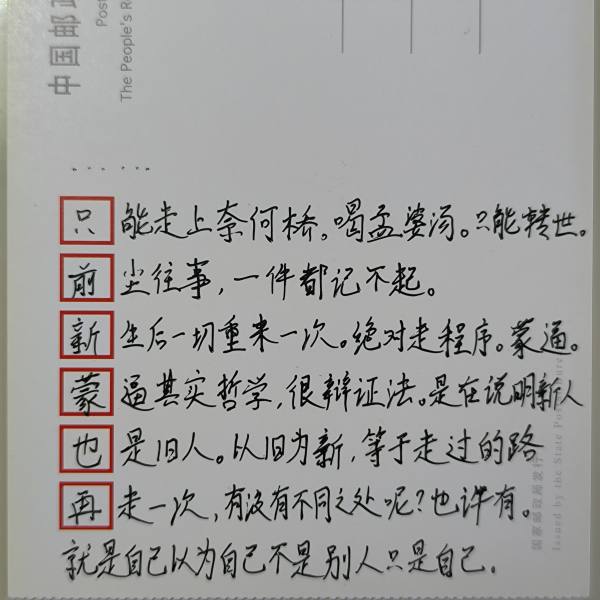 中国邮政
Post
The People's R
只能走上奈何桥。喝孟婆汤。只能转世。
前尘往事，一件都记不起。
新生后一切重来一次。绝对走程序。蒙逼。
蒙逼其实哲学，很辩证法。是在说明新人
也是旧人。以旧为新，等于走过的路
再走一次，有没有不同之处呢？也许有。
就是自己以为自己不是别人只是自己。
国家邮政局发行
Issued by the State Post Bureau